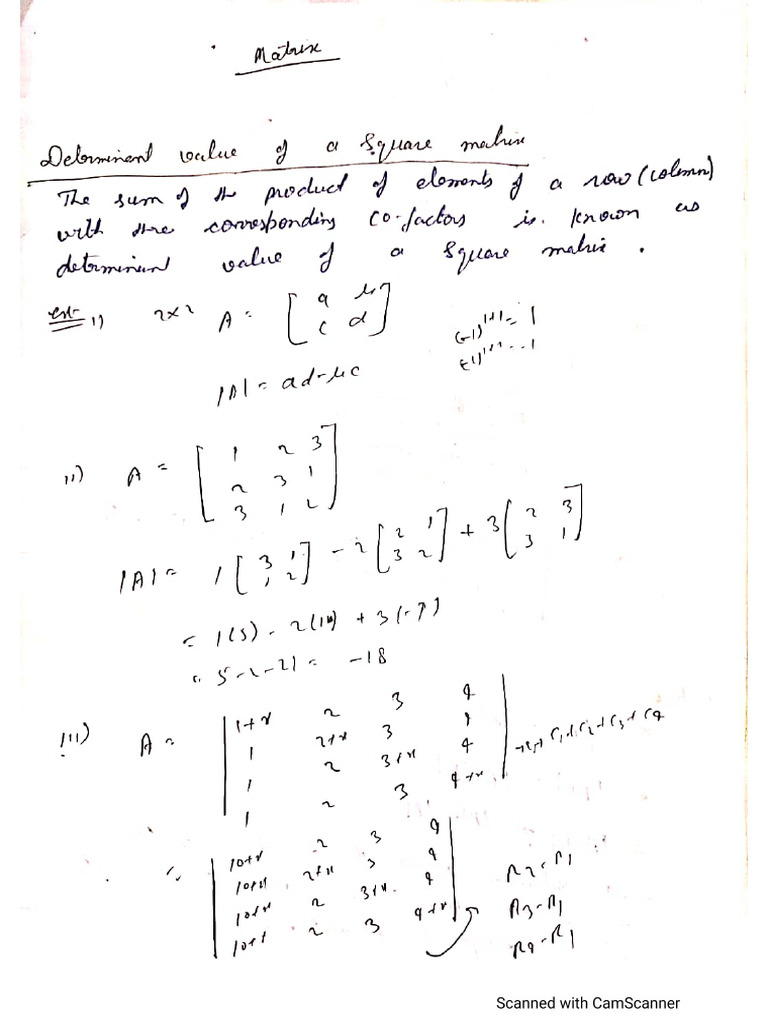 Matrix
Determinant value of a Square matrix
The sum of the product of elements of a row (column)
with the corresponding co-factors is known as
determinant value of a square matrix.
ex:- i) 2x2 A = [ a b
c d ]
(-1)¹⁺¹ = 1
|A| = ad-bc
ii) A = [ 1 2 3
2 3 1
3 1 2 ]
|A| = 1 [ 3 1
1 2 ] - 2 [ 2 1
3 2 ] + 3 [ 2 3
3 1 ]
= 1(5) - 2(1) + 3(-7)
= 5-2-21 = -18
iii) A = | 1+x 2 3 4
1 2+x 3 4
1 2 3+x 4
1 2 3 4+x | C₁+C₂+C₃+C₄
= | 10+x 2 3 4
10+x 2+x 3 4
10+x 2 3+x 4
10+x 2 3 4+x |
R2-R1
R3-R1
R4-R1
Scanned with CamScanner